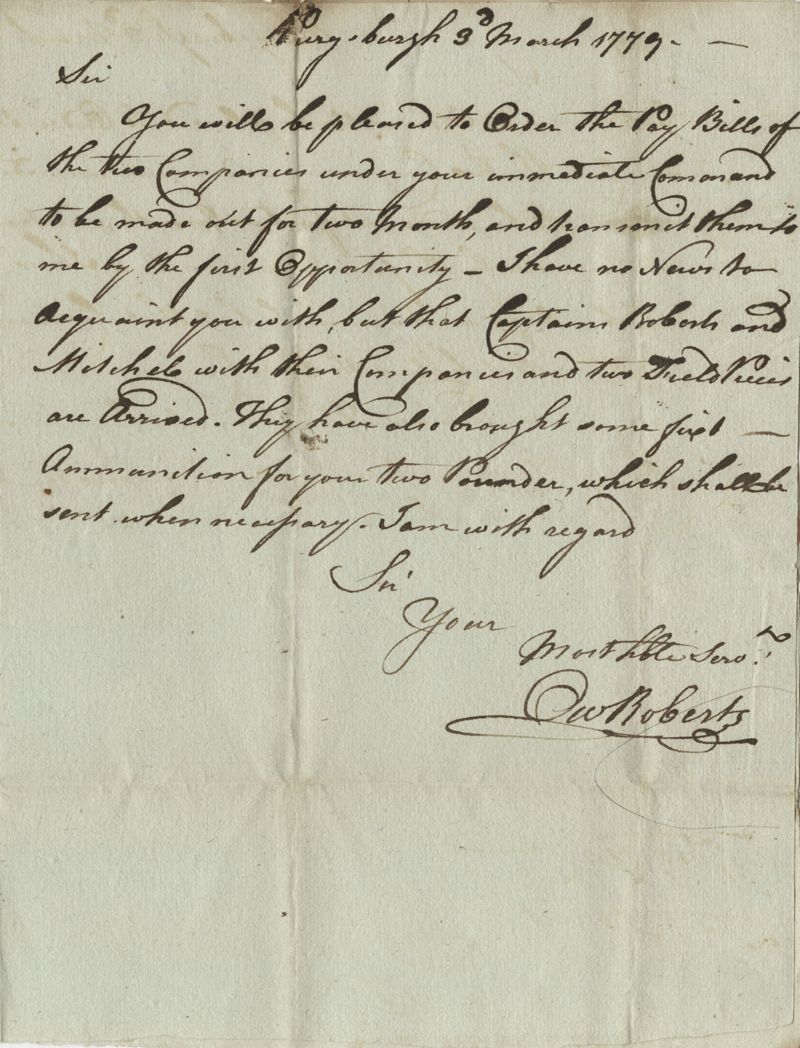 Purysburgh 3d March 1779. —
Sir
You will be pleased to Order the Pay Bills of
the two Companies under your immediate Command
to be made out for two Month, and transmit them to
me by the first Opportunity — I have no News to
Acquaint you with, but that Captains Roberts and
Mitchel with their Companies and two Field Pieces
are Arrived. They have also brought some fixt —
Ammunition for your two Pounder, which shall be
sent when necessary. I am with regard
Sir
Your
Most hble Servt.
Ow Roberts